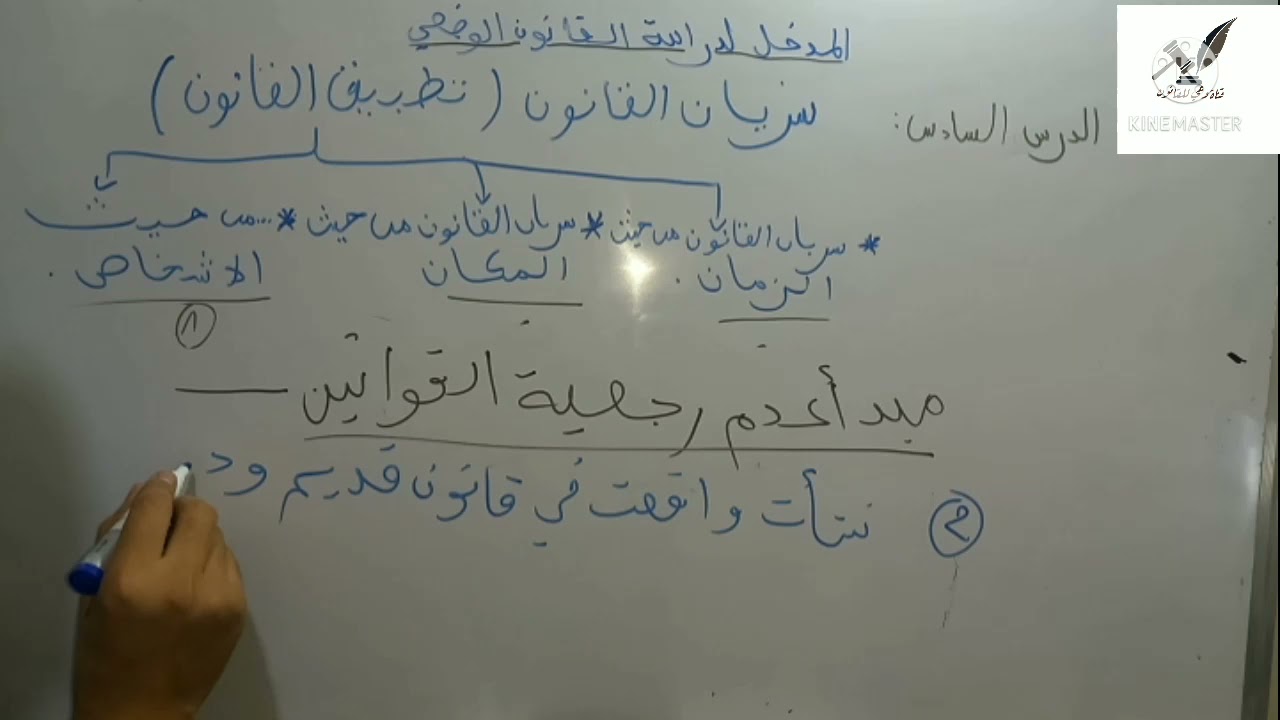 المدخل لدراسة القانون الوضعي
الدرس السادس:
سريان القانون (تطبيق القانون)
* سريان القانون من حيث الزمان.
* سريان القانون من حيث المكان
* ...من حيث الاشخاص.
١
مبدأ عدم رجعية القوانين
٢ نشأت واقعت في قانون قديم ود
KINEMASTER